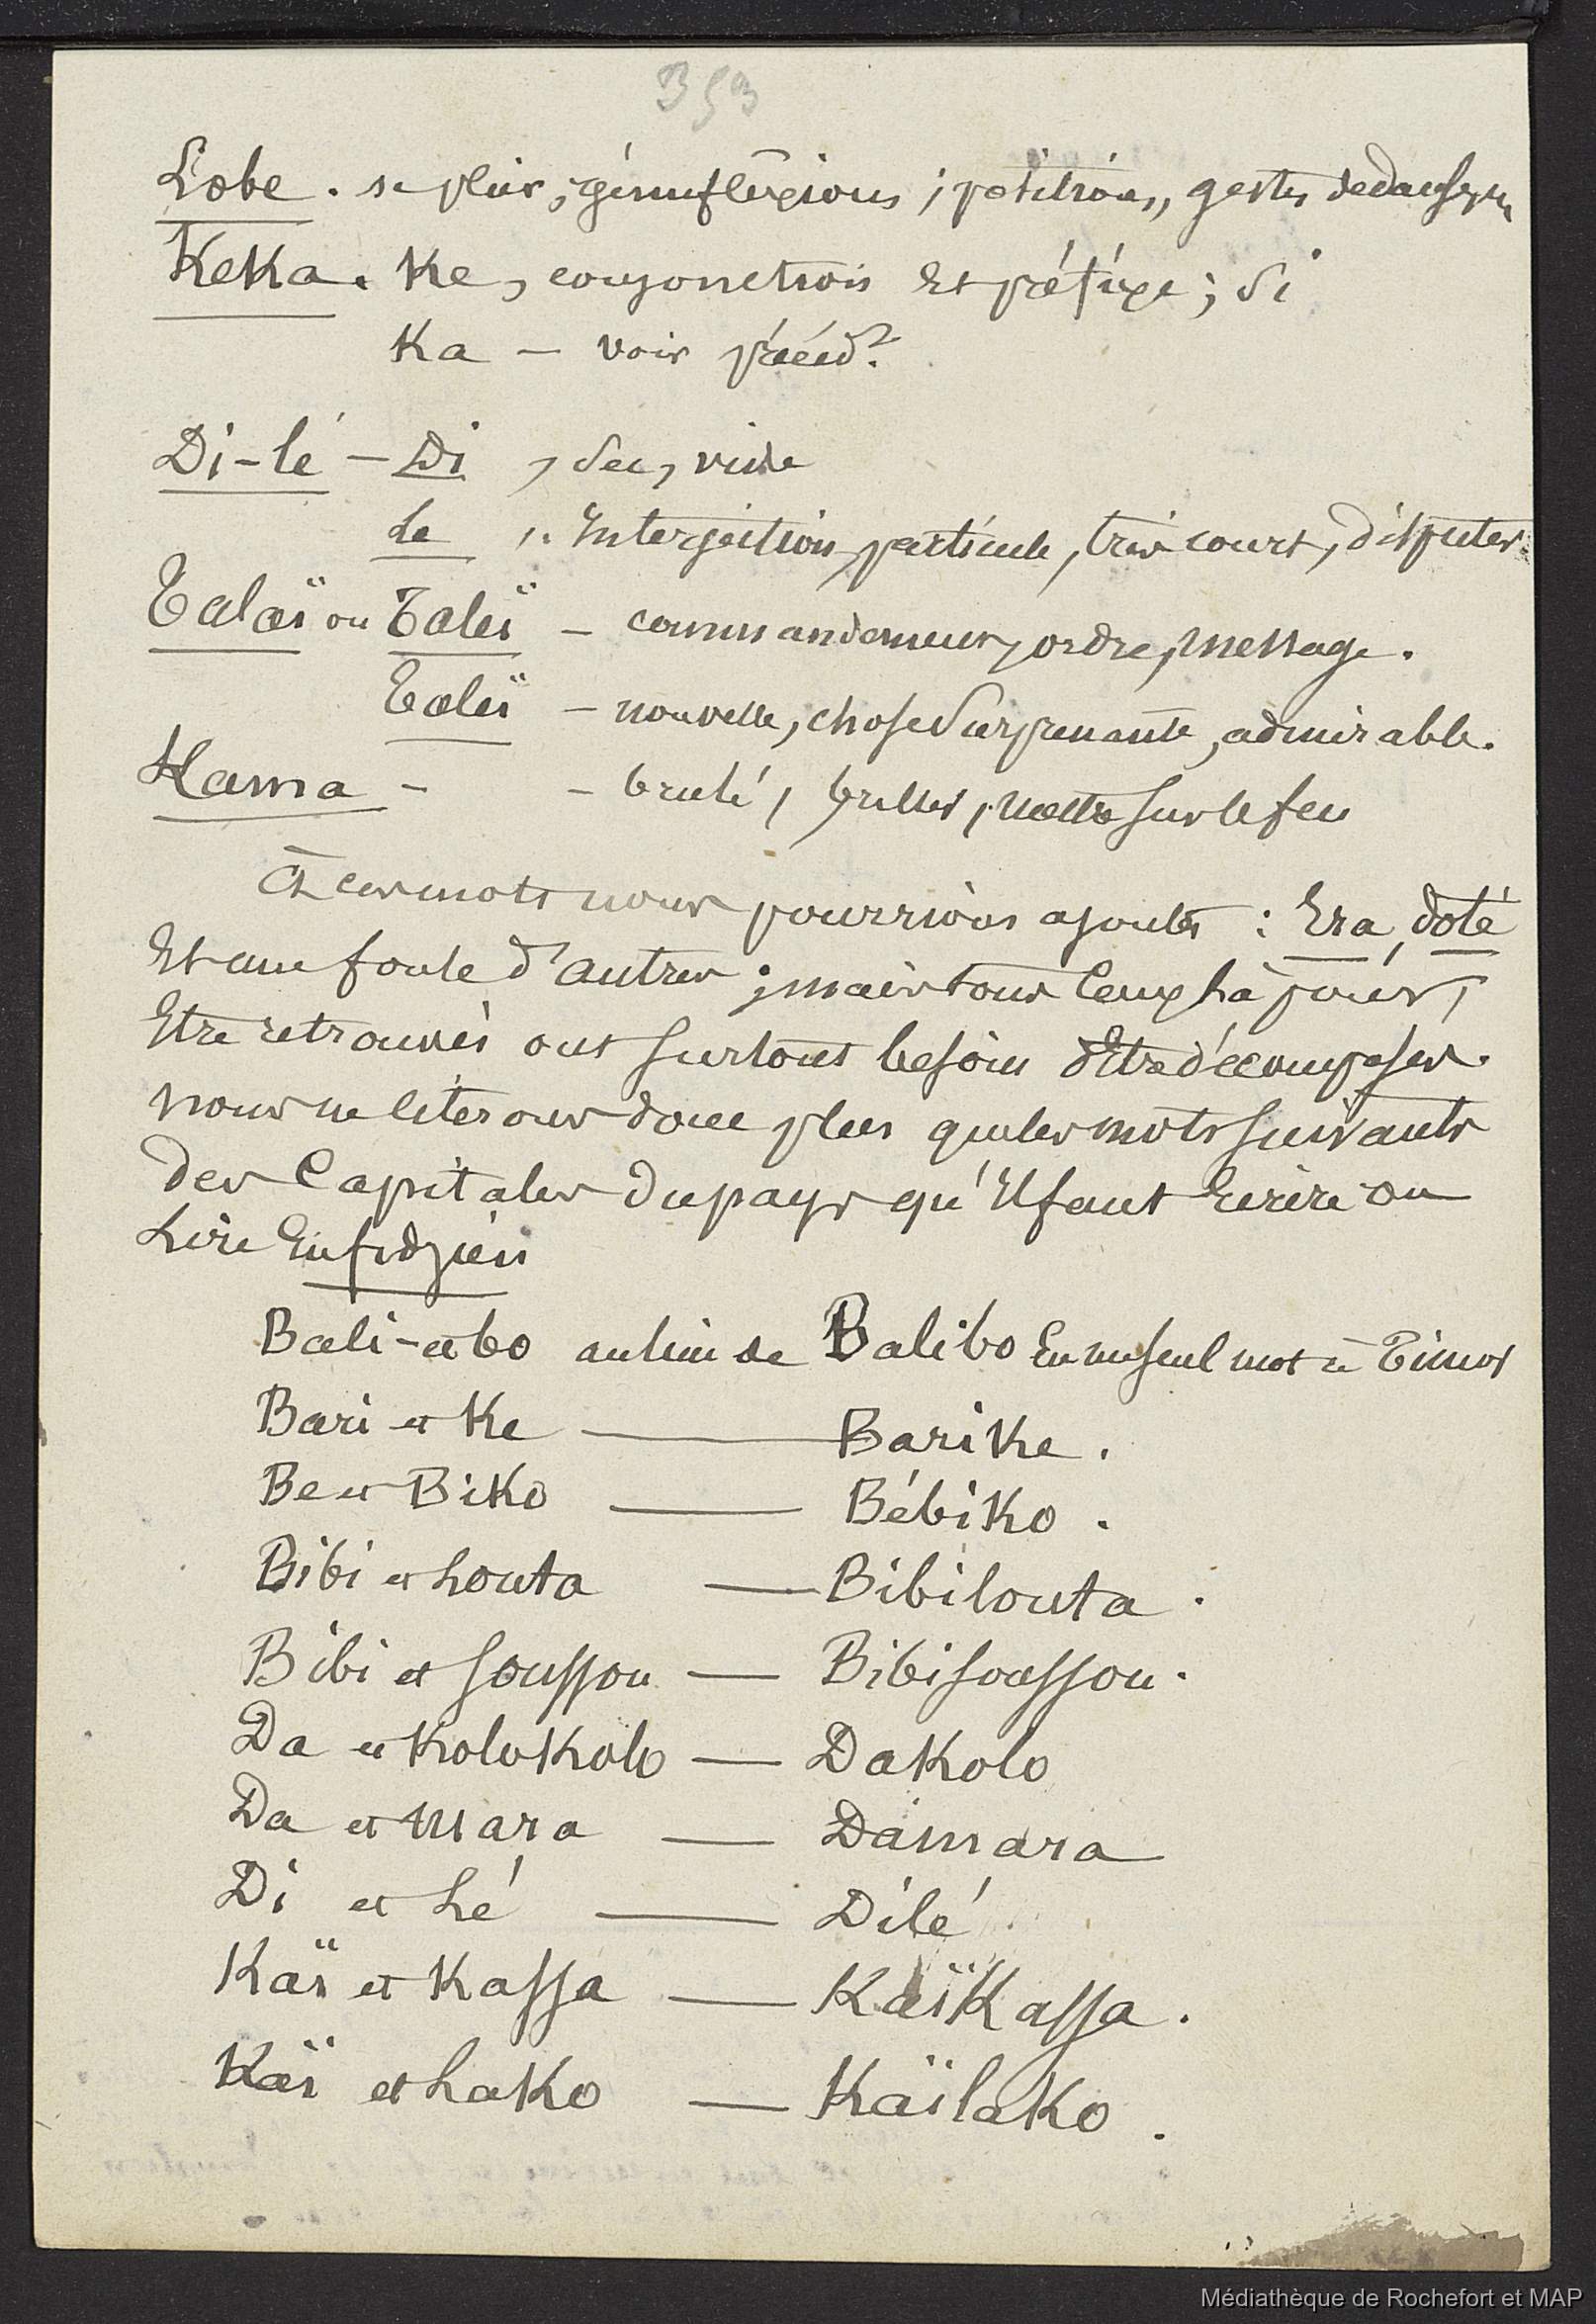 353
Lobe. se plier, génuflexions; positions, gestes de danseurs
KeKa. Ke, conjonction et préfixe; si
Ka — voir précédt.
Di-lé — Di, sec, vide
Le, . Interjection, particule, très court, disputer.
Talaï ou Taleï — commandement, ordre, message.
Taleï — nouvelle, chose surprenante, admirable.
Kama - - brulé, griller, mettre sur le feu
À ces mots nous pourrions ajouter : Era, doté
Et une foule d'autres; mais tous ceux là pour,
Etre retrouvés ont surtout besoin d'Etre décomposés.
nous ne citerons donc plus que les mots suivants
des Capitales du pays qu'Il faut Ecrire ou
Lire En fidzien
Bali-et bo au lieu de Balibo En un seul mot à Timor
Bari et Ke — Barike.
Be et BiKo — BébiKo.
Bibi et Louta — Bibilouta.
Bibi et soussou — Bibisoussou.
Da et KoloKolo — DaKolo
Da et Mara — Damara
Di et Lé — Dilé
Kaï et Kassa — KaïKassa.
Kaï et LaKo — KaïlaKo.
Médiathèque de Rochefort et MAP